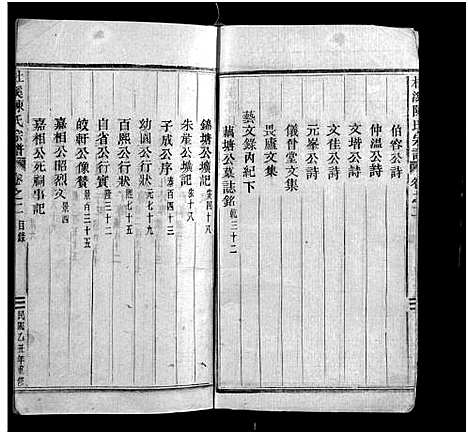 杜溪陳氏宗譜
伯容公詩
仲溫公詩
文增公詩
文佳公詩
元峯公詩
儀晉堂文集
畏廬文集
藝文錄丙紀下
藕塘公墓誌銘 乾三十二
錦塘公壙記 亥四十八
朱崖公壙記 亥十八
子成公序 泰百四十三
幼園公行狀 元七十九
百熙公行狀 熙七十五
自省公行實 隆三十二
皎軒公像贊 景百三十五
嘉相公昭烈文 景四
嘉相公死祠事記
杜溪陳氏宗譜 卷之二 目錄 民國乙丑年重修